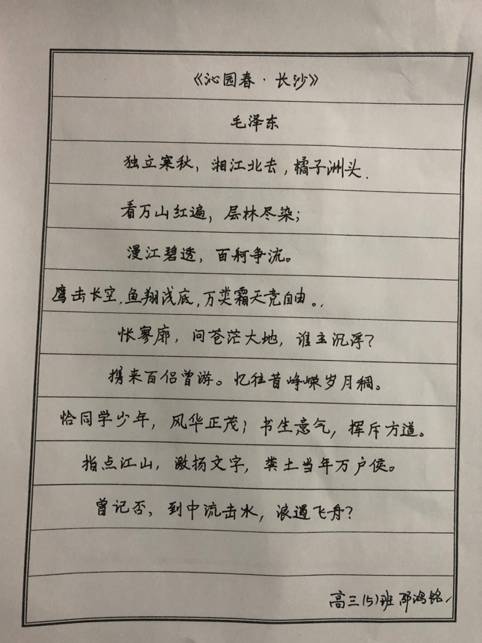 《沁园春·长沙》
毛泽东
独立寒秋，湘江北去，橘子洲头.
看万山红遍，层林尽染；
漫江碧透，百舸争流。
鹰击长空.鱼翔浅底，万类霜天竞自由。.
怅寥廓，问苍茫大地，谁主沉浮？
携来百侣曾游。忆往昔峥嵘岁月稠。
恰同学少年，风华正茂；书生意气，挥斥方遒。
指点江山，激扬文字，粪土当年万户侯。
曾记否，到中流击水，浪遏飞舟？
高三(5)班 邵鸿铭